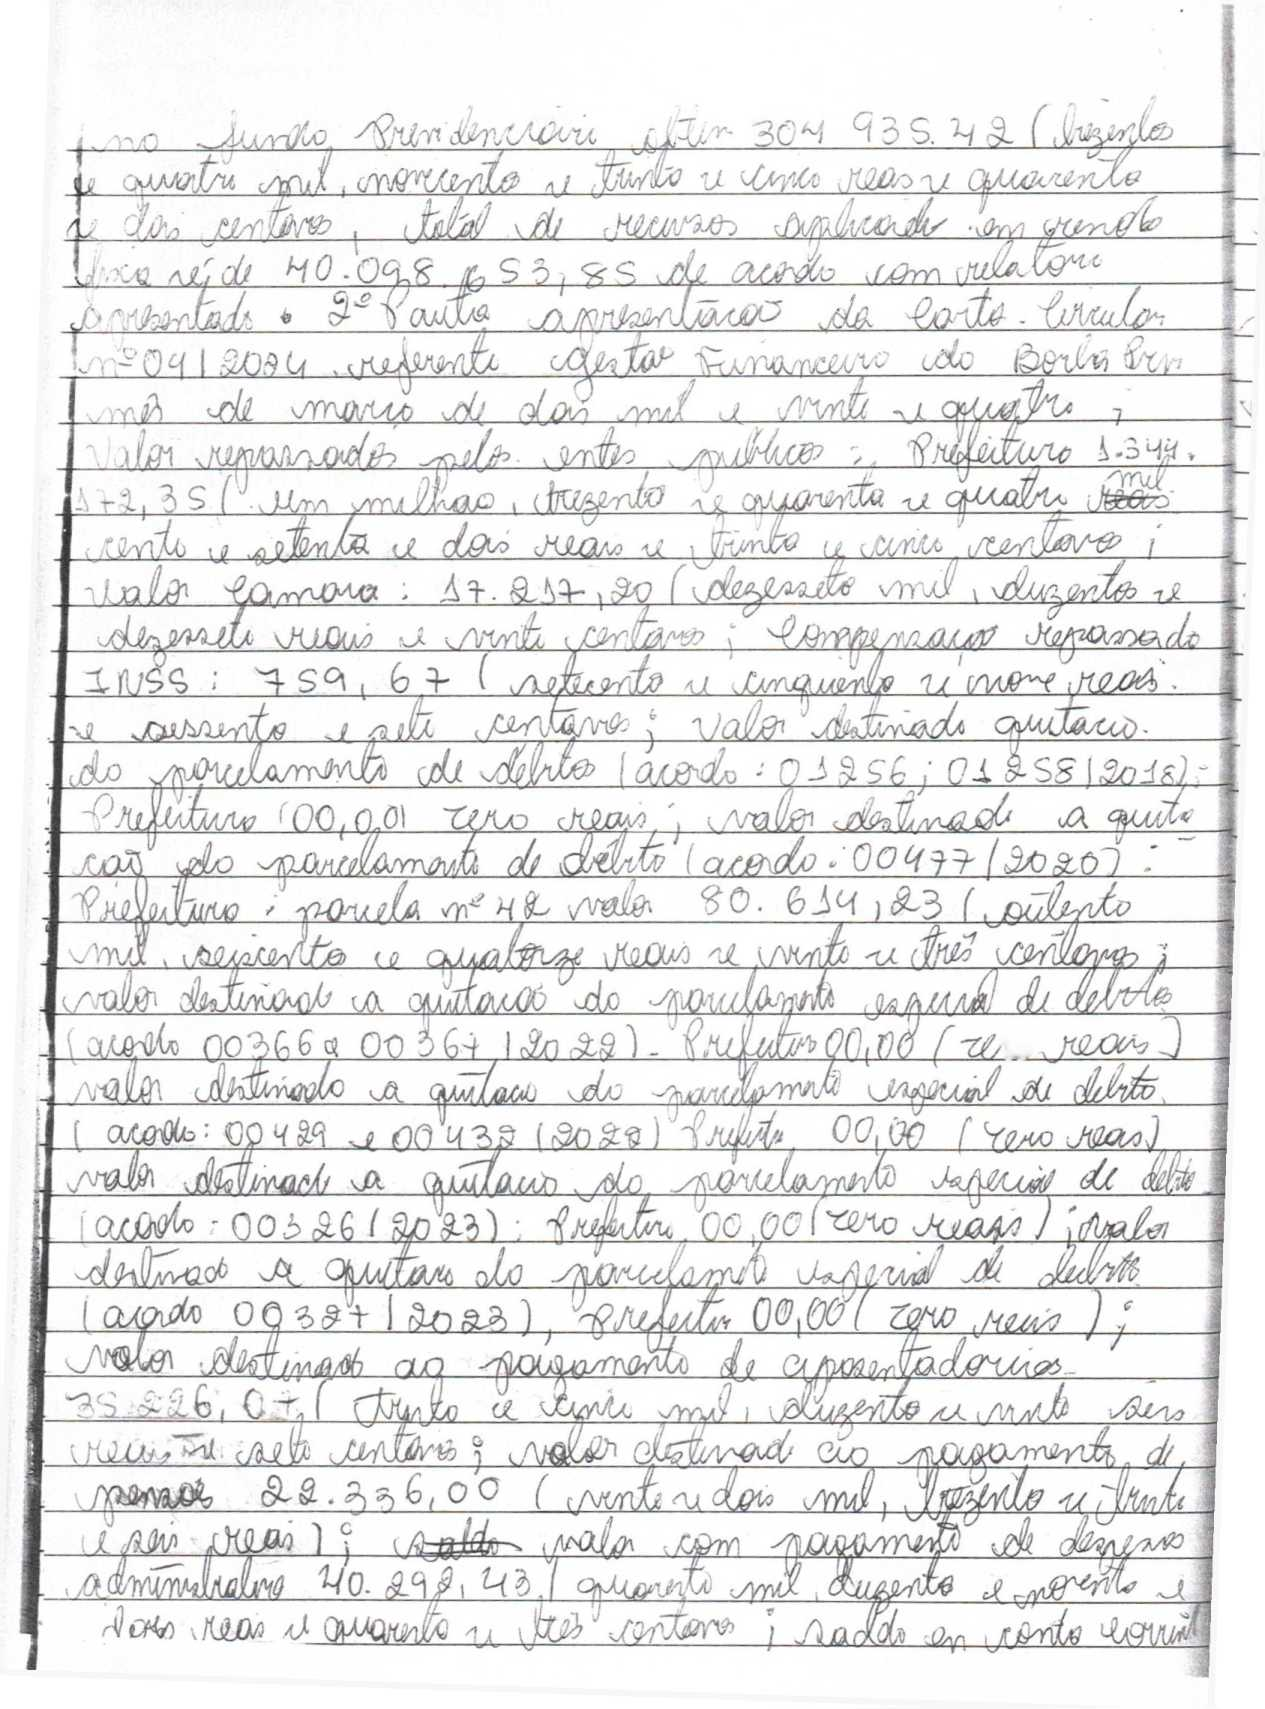 no fundo Previdenciari obter 304 935.42 (trezentos
e quatri mil, novecento e trinta e cinco reas e quarenta
e dois centavos, total de recursos aplicado em renda
fixa é; de 40.098.653,85 de acordo com relatori
apresentado. 2º Pauta apresentacão da Carta Circular
nº 04/2024 referente gestão Financeiro do Borba Prev
mês de marco de dois mil e vinte e quatro ;
Valor repassados pelos entes publicos : Prefeitura 1.344.
172,35 ( um milhao, trezento e quarenta e quatri reais mil
cento e setenta e dois reais e trinta e cinco centavos ;
Valor Camara : 17.217,20 ( dezesseto mil, duzentos e
dezesseti reais e vinte centavos ; Compensação repassado
INSS : 759,67 ( setecento e cinquenta e nove reais
e sessenta e sete centavos ; Valor destinado quitacio
do parcelamento de débitos (acordo : 01256 ; 01258/2018) :
Prefeitura (00,00) zero reais ; valor destinado a quita
caõ do parcelamento de débito (acordo : 00477/2020) :
Prefeitura : parcela nº 42 valor 80.614,23 ( oitento
mil, seiscento e quatorze reais e vinte e três centavos ;
valor destinado a quitacaõ do parcelamento especial de debitos
(acordo 00366 a 00367 /2022) - Prefeitura 00,00 ( reais )
valor destinado a quitacio do parcelamento especial de debito
( acordo : 00429 e 00432 /2022) Prefeitu 00,00 ( zero reas)
valor destinado a quitacio do parcelamento especial de debito
(acordo : 00326/2023) : Prefeitura 00,00 (zero reais) ; valor
destinado a quitacao do parcelamento especial de debito
(acordo 00327/2023), Prefeitur 00,00 ( zero reais ) ;
valor destinado ao pagamento de aposentadorias
35.226,07 ( trinta e cinco mil, duzento e vinte seis
reais e sete centavos ; valor destinado ao pagamento de
pensões 22.336,00 ( vinte e dois mil, trezento e trinta
e seis reais ) ; saldo valor com pagamento de despesas
administrativo 40.292,43 ( quarenta mil duzento e noventa e
dois reas e quarenta e três centavos ; saldo en conta corrent